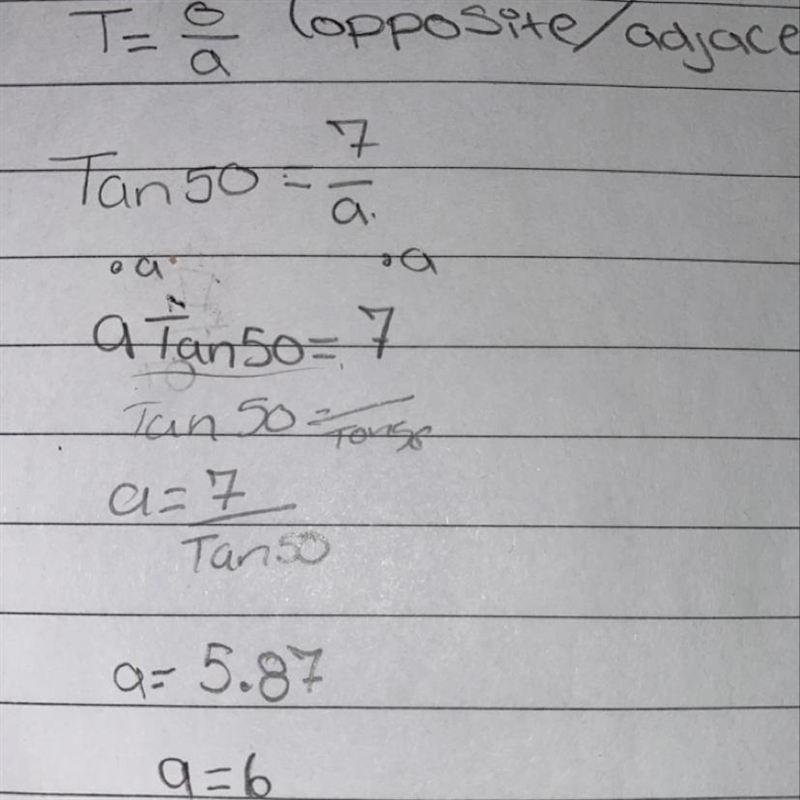 T= o/a (opposite/adjace
Tan 50 = 7/a.
•a •a
a Tan 50 = 7
Tan 50 = /Tan 50
a = 7/Tan 50
a= 5.87
a=6